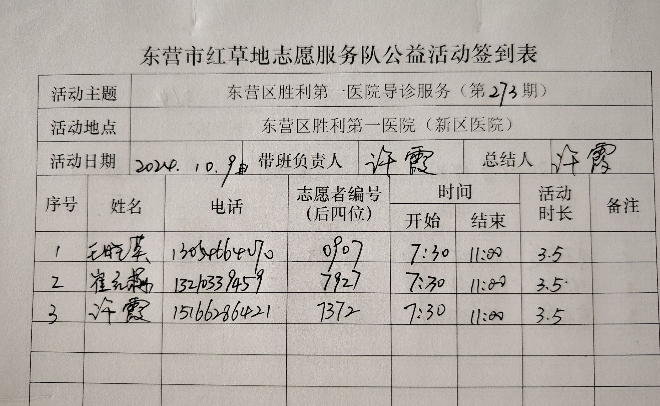 东营市红草地志愿服务队公益活动签到表
活动主题 东营区胜利第一医院导诊服务（第273期）
活动地点 东营区胜利第一医院（新区医院）
活动日期 2024.10.9 带班负责人 许霞 总结人 许霞
序号 姓名 电话 志愿者编号（后四位） 时间 开始 结束 活动时长 备注
1 0907 7:30 11:00 3.5
2 崔 13210339459 7927 7:30 11:00 3.5
3 许霞 15166286421 7372 7:30 11:00 3.5